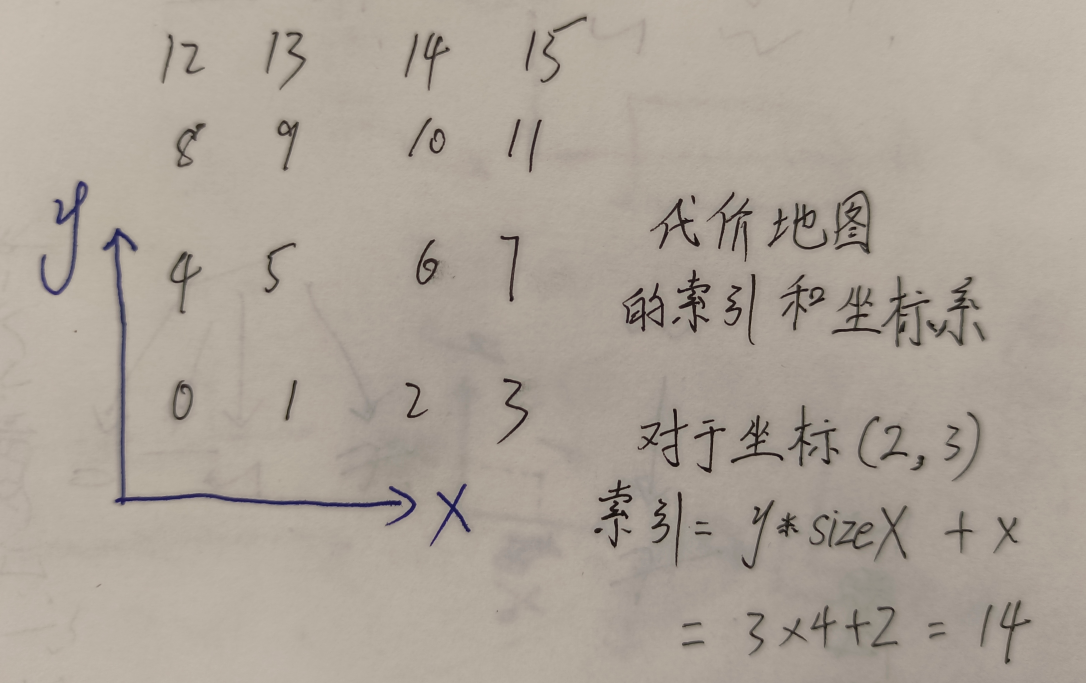 12 13 14 15
8 9 10 11
y
4 5 6 7
0 1 2 3
x
代价地图
的索引和坐标系
对于坐标(2,3)
索引= y*sizeX + x
= 3×4+2 = 14